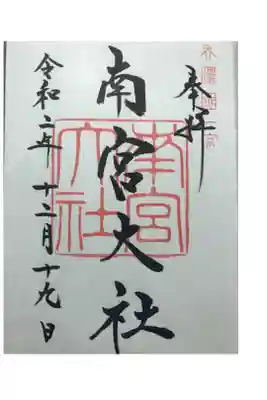 奉拝
南宮大社
南宮
大社
令和二年十二月十九日